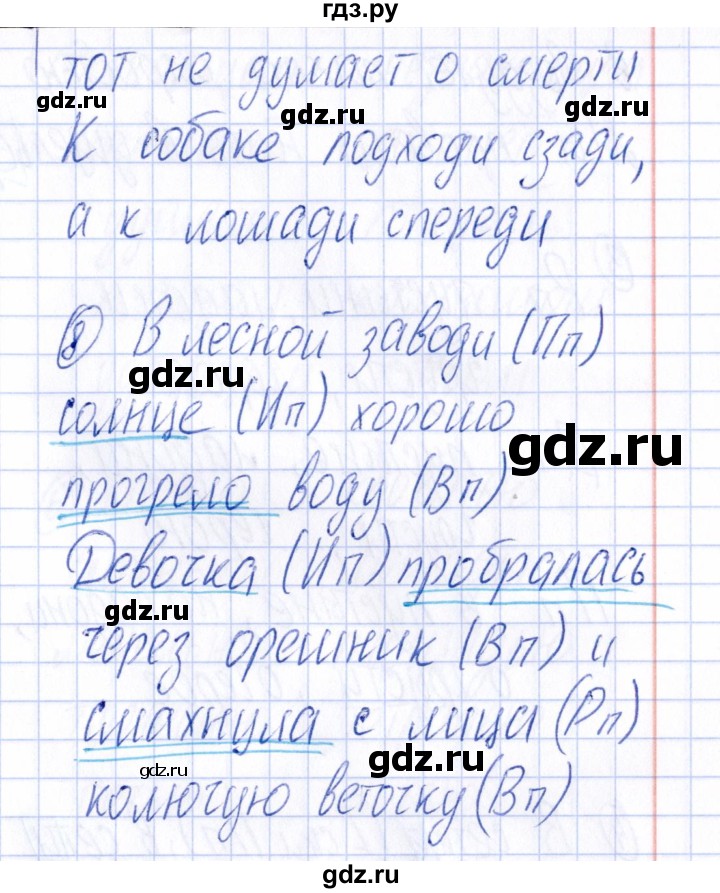 гдз.ру
тот не думает о смерти
gdz.ru
gdz.ru
К собаке подходи сзади,
а к лошади спереди
gdz.ru
8) В лесной заводи (Пп)
gdz.ru
солнце (Ип) хорошо
gdz.ru
прогрело воду (Вп).
Девочка (Ип) пробралась
gdz.ru
через орешник (Вп) и
смахнула с лица (Рп)
gdz.ru
gdz.ru
колючую веточку (Вп)